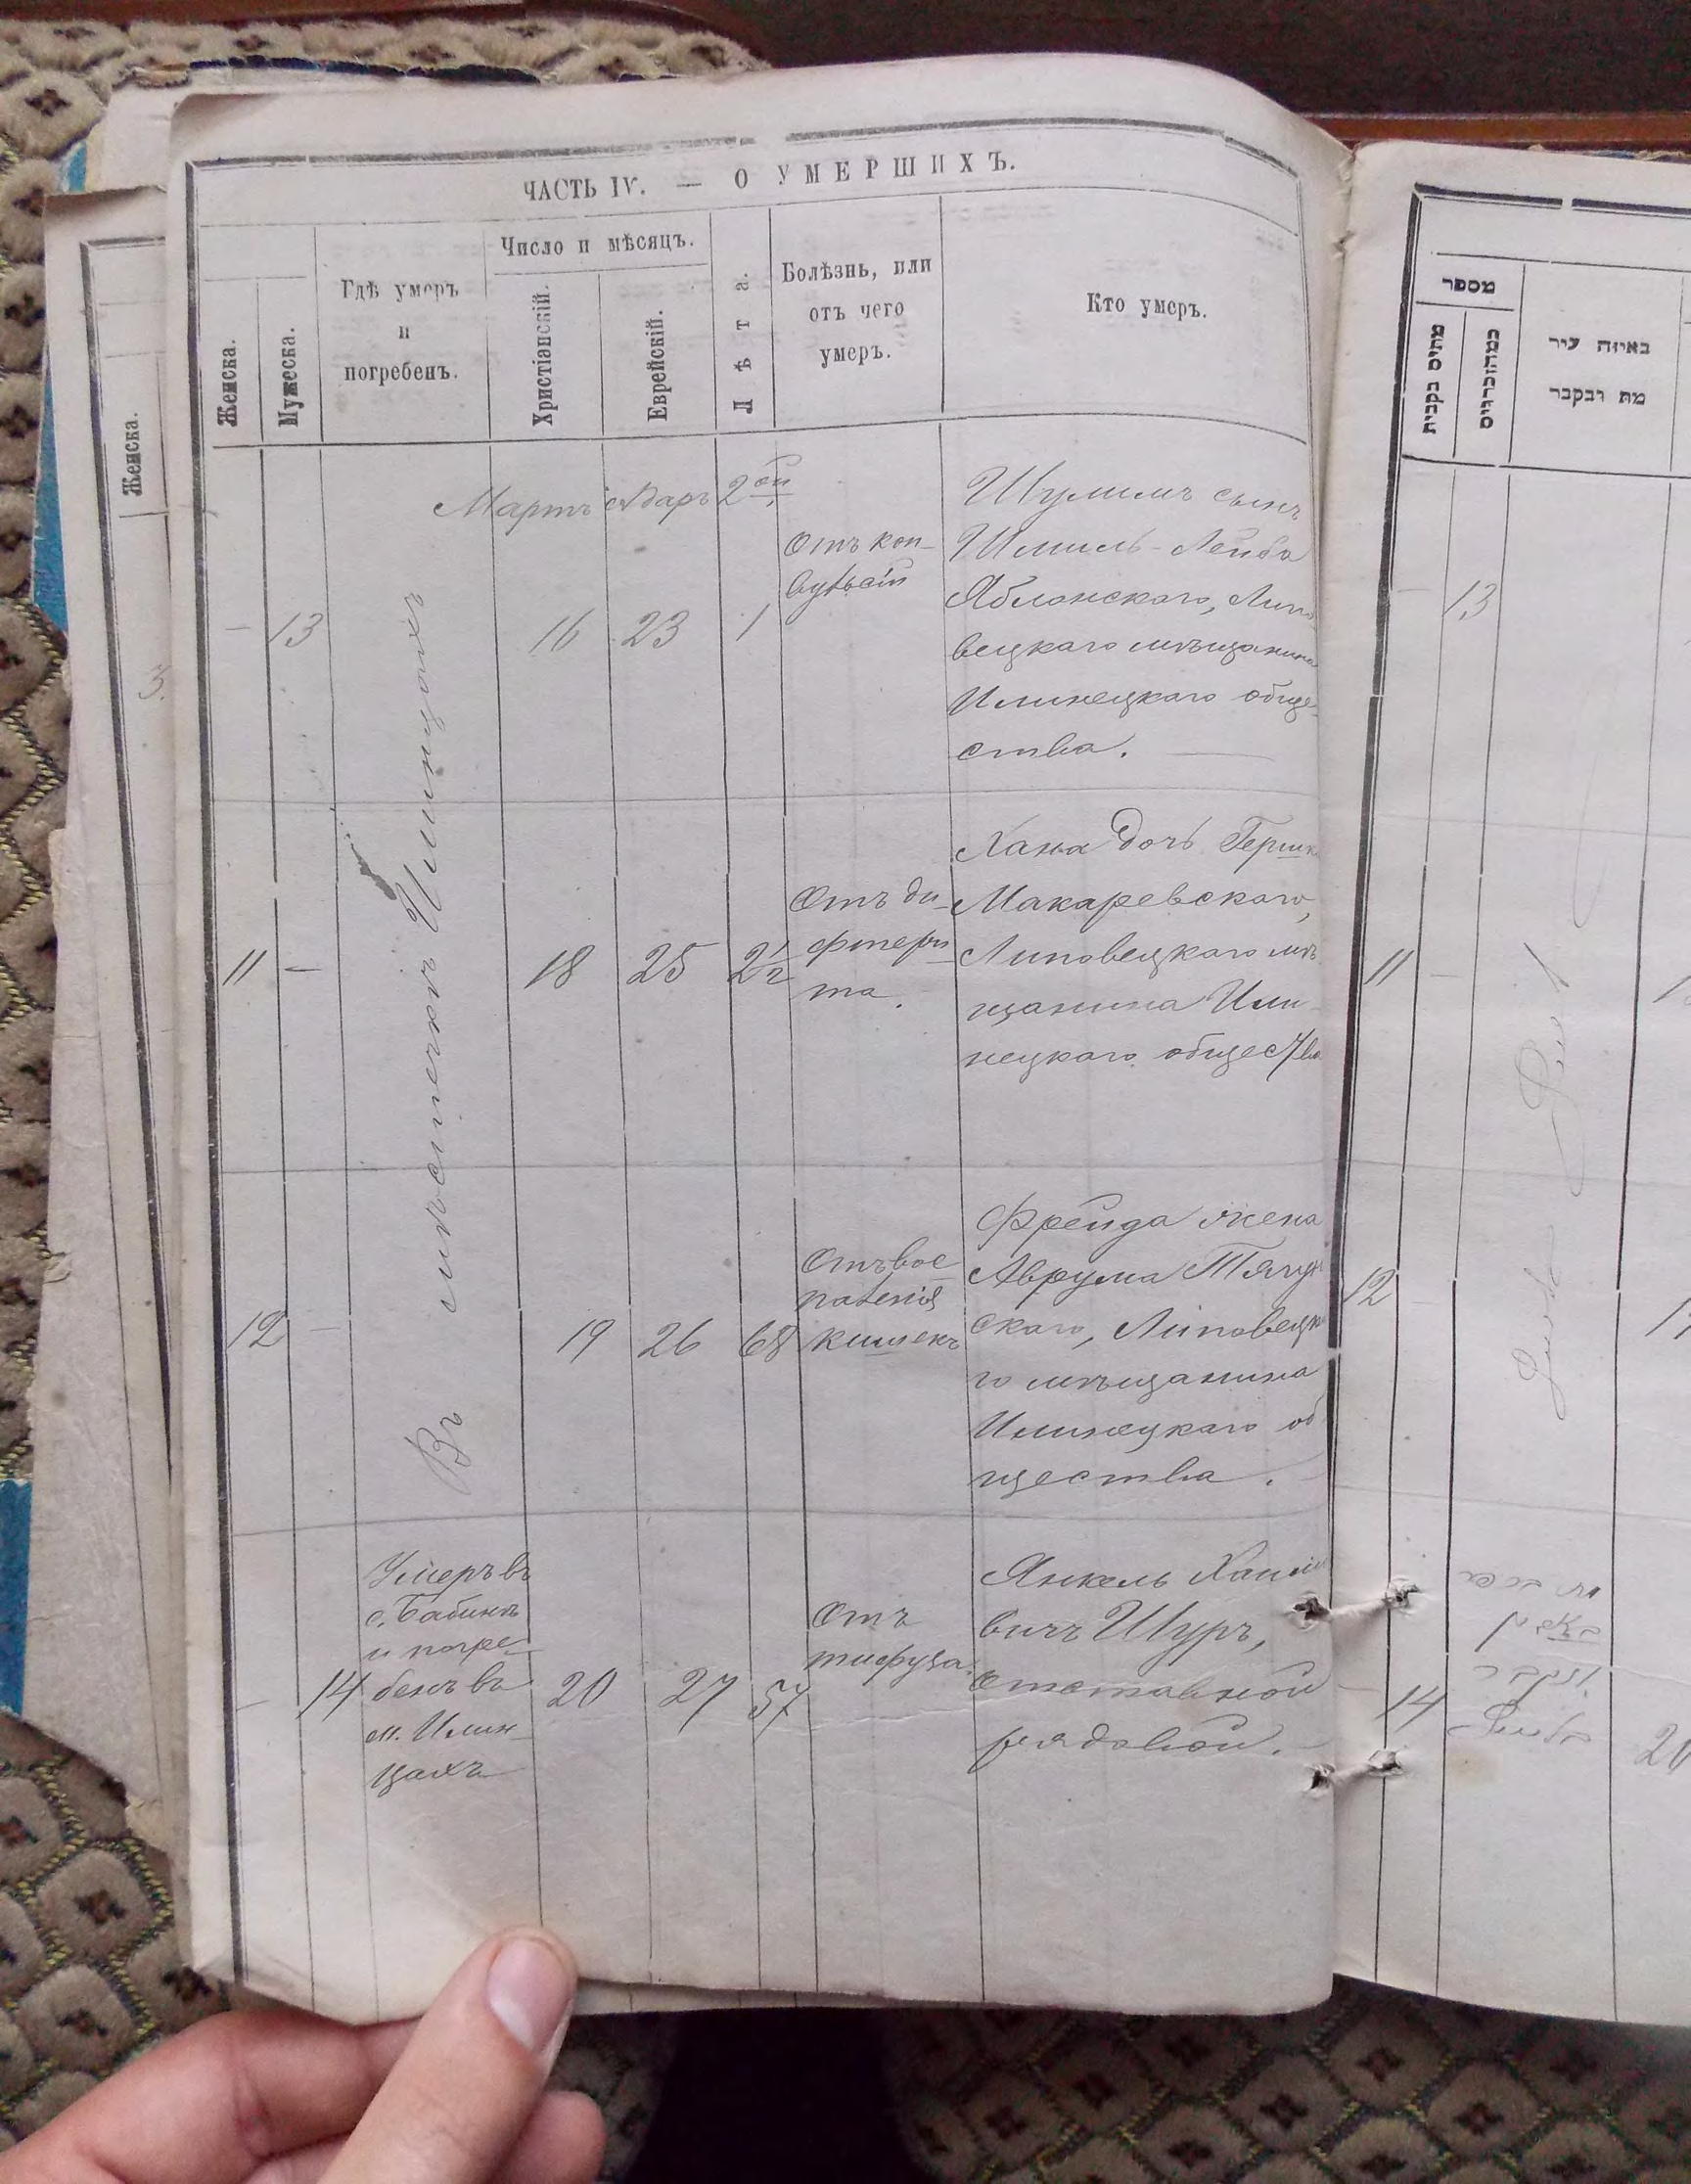 ЧАСТЬ IV. — О УМЕРШИХЪ.
Женска.
Мужеска.
Гдѣ умеръ
и
погребенъ.
Число и мѣсяцъ.
Христіанскій.
Еврейскій.
Лѣта.
Болѣзнь, или
отъ чего
умеръ.
Кто умеръ.
Мартъ Адаръ 2ой
Въ мѣстечкѣ Илинцахъ
— 13 16 23 1
Отъ кон-
вульсій
Шулимъ сынъ
Шмиль-Лейба
Яблонскаго, Липо
вецкаго мѣщанина
Илинецкаго обще-
ства.
11 — 18 25 2 1/2
Отъ ди-
фтери
та.
Хана дочь Гершк
Макаревскаго,
Липовецкаго мѣ
щанина Или-
нецкаго общества
12 — 19 26 68
Отъ вос
паленія
кишекъ
Фрейда жена
Аврума
скаго, Липовецка
го мѣщанина
Илинецкаго об
щества.
— 14 20 27 57
Умеръ въ
с. Бабинѣ
и погре-
бенъ въ
м. Илин-
цахъ
Отъ
тифуза.
Янкель Хаимо
вичъ Шуръ,
отставной
рядовой.
Женска.
3
מספר
באיזה עיר
מת ונקבר
13
11
12
14
20